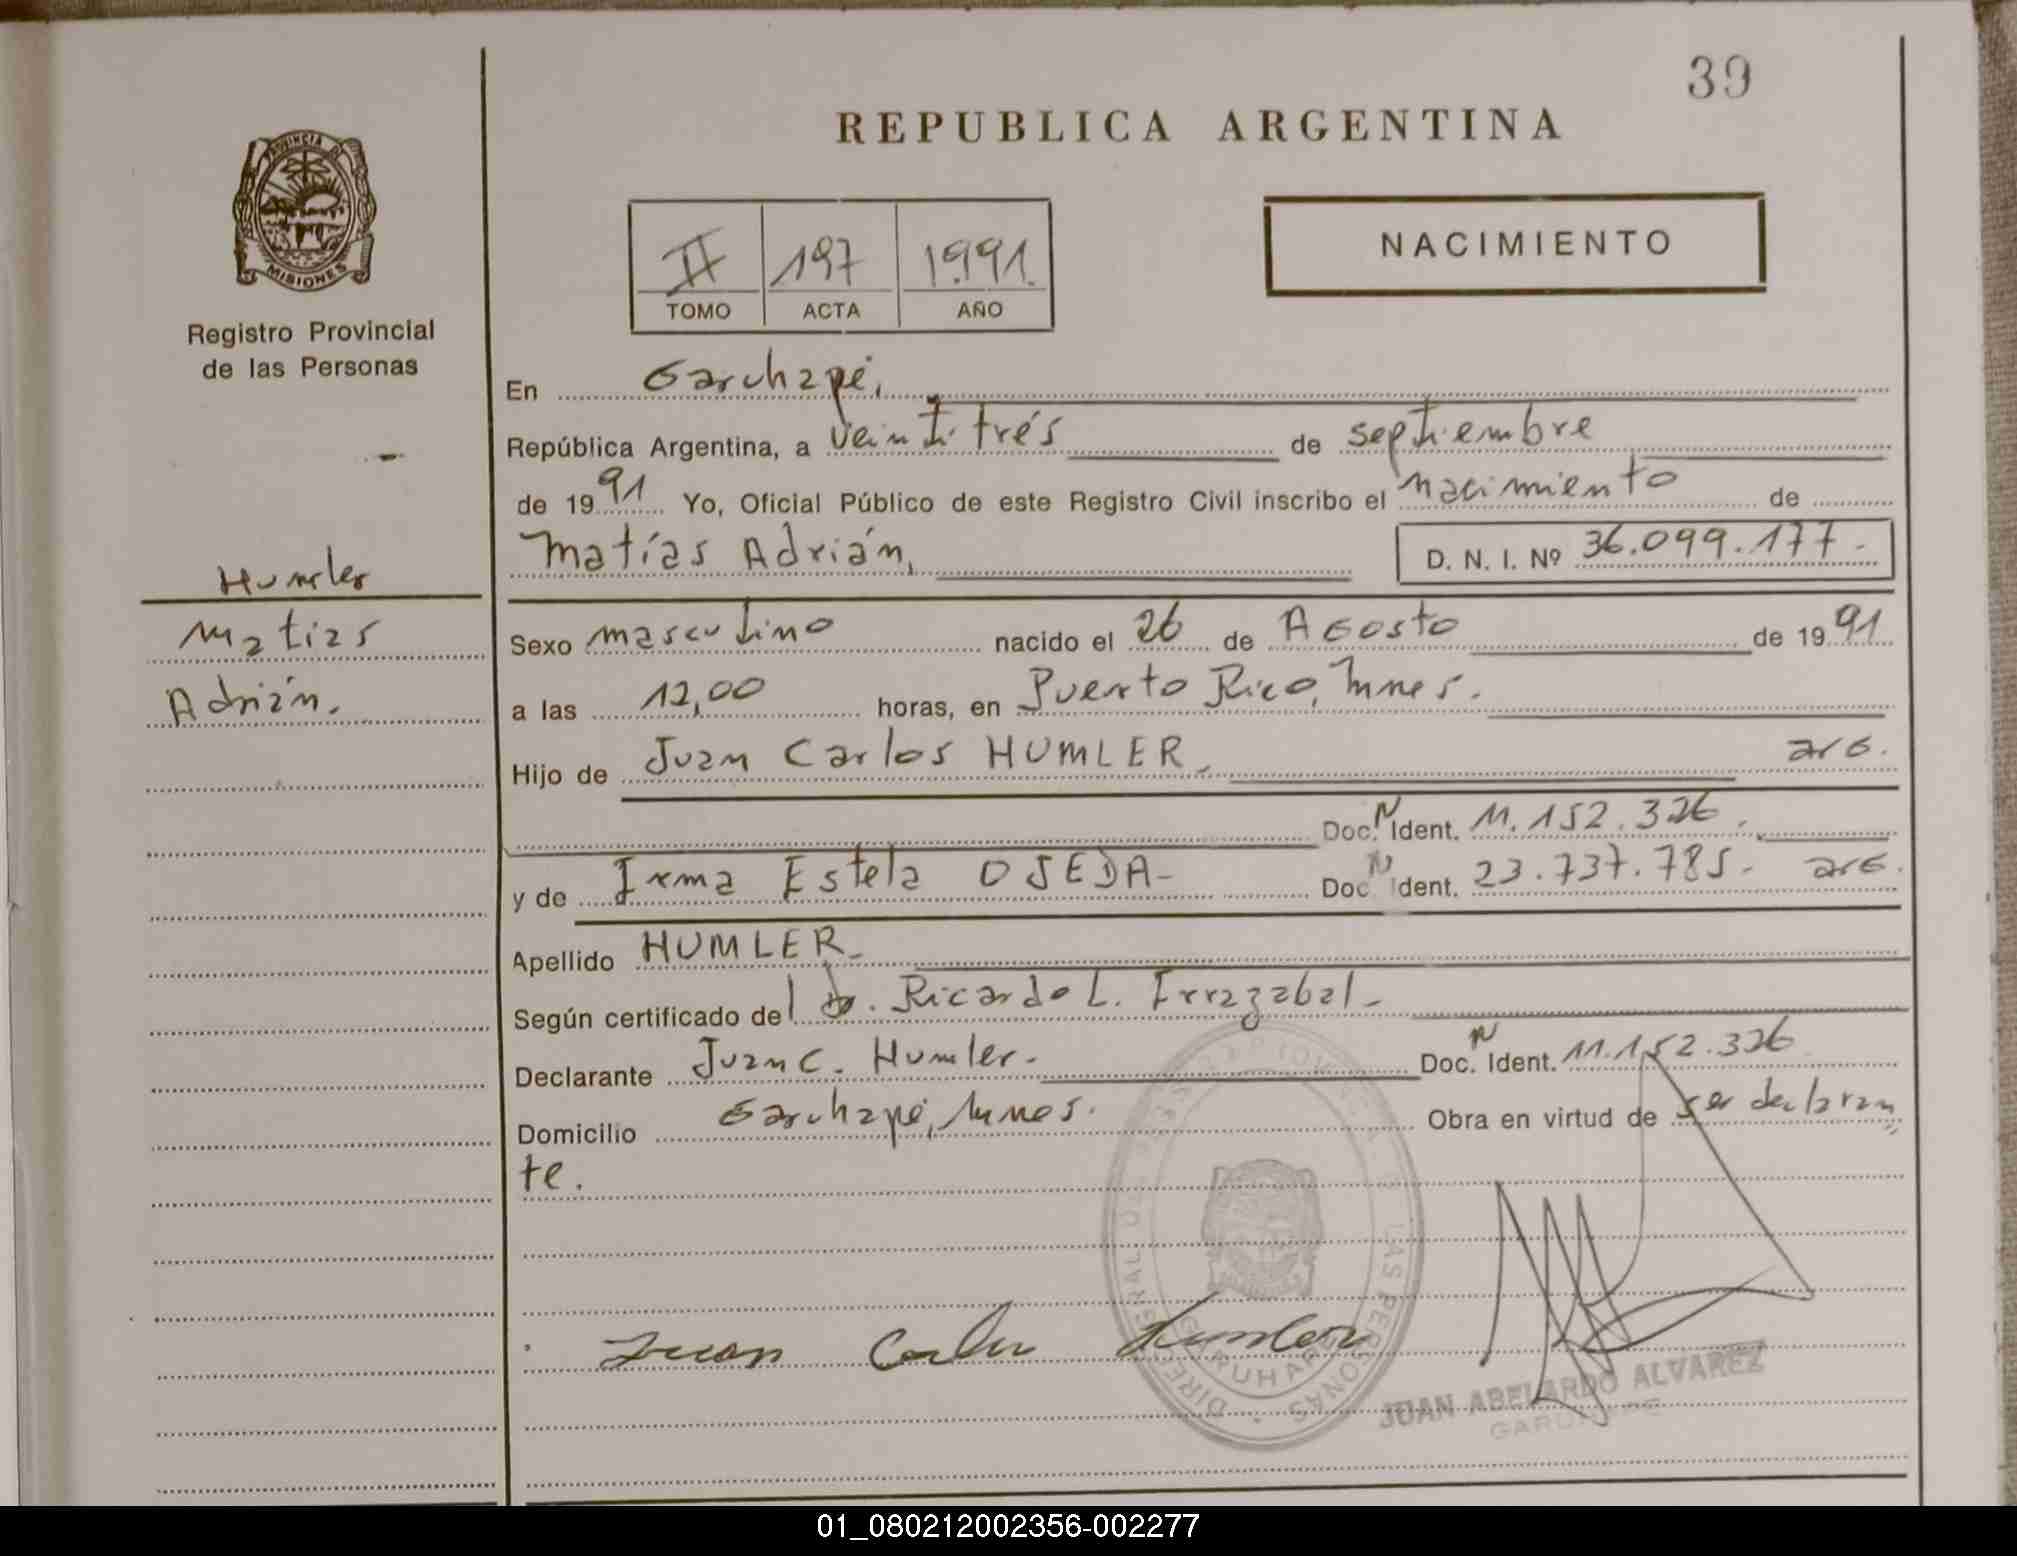 39
REPUBLICA ARGENTINA
PROVINCIA DE
MISIONES
Registro Provincial
de las Personas
II 197 1991.
TOMO ACTA AÑO
NACIMIENTO
En Garuhapé,
República Argentina, a veintitrés de septiembre
de 1991 Yo, Oficial Público de este Registro Civil inscribo el nacimiento de
Matías Adrián, D. N. I. Nº 36.099.177-
Humler
Matías
Adrián.
Sexo masculino nacido el 26 de Agosto de 1991
a las 12,00 horas, en Puerto Rico, Mnes.
Hijo de Juan Carlos HUMLER- arg.
Doc. N Ident. 11.152.326.
y de Irma Estela OJEDA- Doc N Ident. 23.737.785- arg.
Apellido HUMLER-
Según certificado del Dr. Ricardo L. Irrazabal-
Declarante Juan C. Humler- Doc. N Ident. 11.152.326
Domicilio Garuhapé, Mnes. Obra en virtud de ser declaran
te.
Juan Carlos Humler
JUAN ABELARDO ALVAREZ
GARUHAPE
01_080212002356-002277